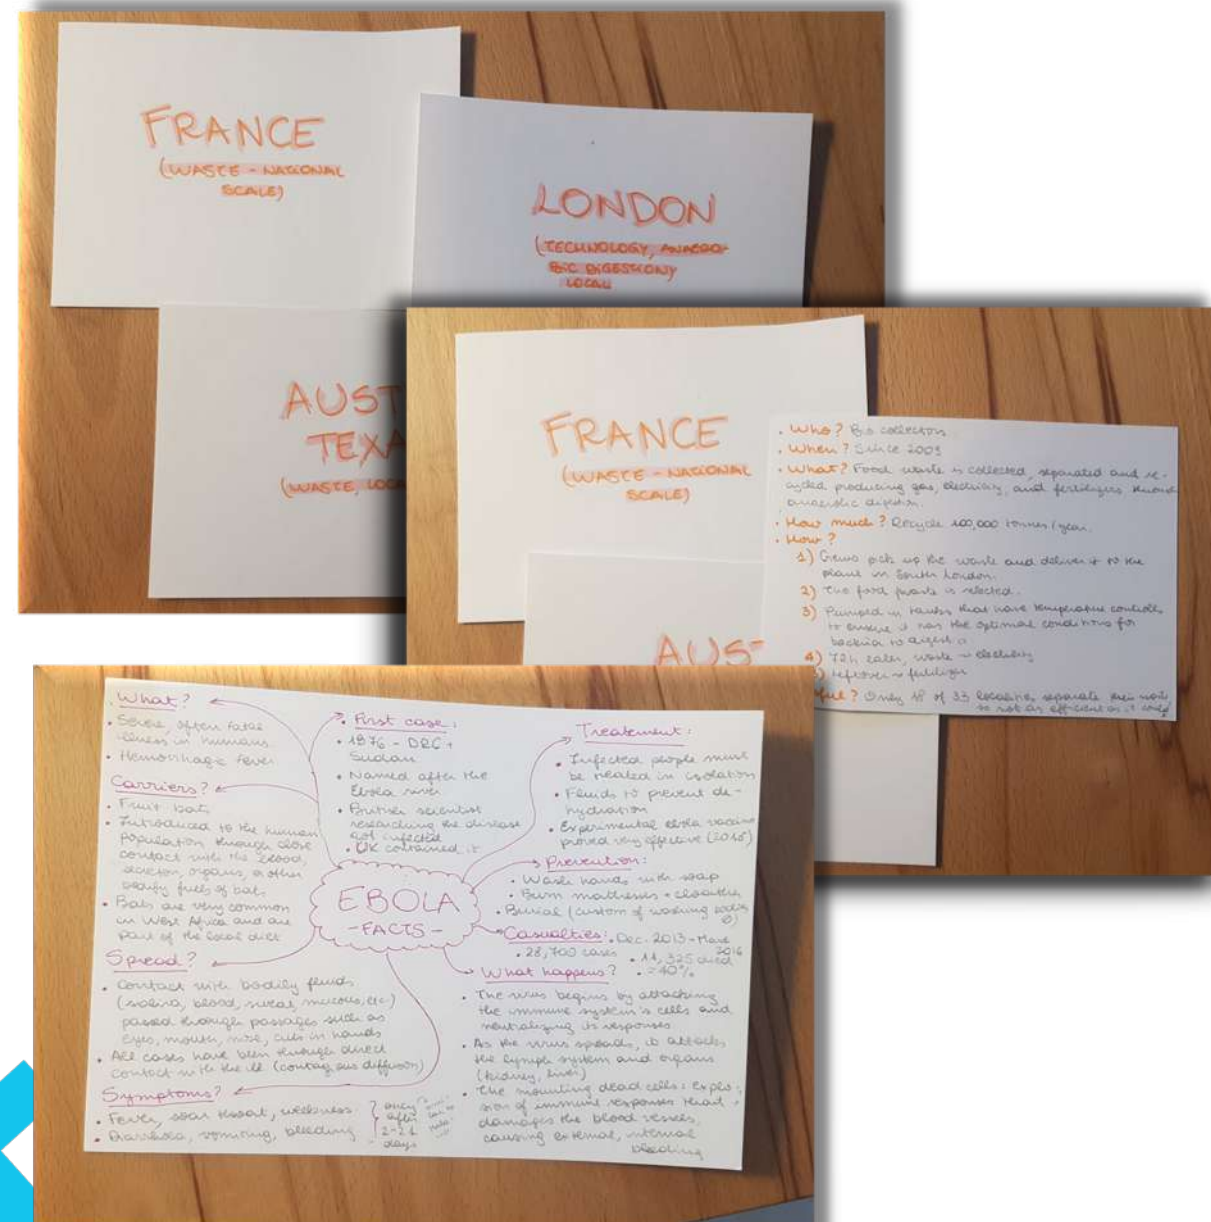 FRANCE
(WASTE - NATIONAL
SCALE)
LONDON
(TECHNOLOGY, ANAERO-
BIC DIGESTION)
LOCAL
AUST
TEXA
(WASTE, LOCA
FRANCE
(WASTE - NATIONAL
SCALE)
AUS
• Who? Bio collectors
• When? Since 2009
• What? Food waste is collected, separated and re-
cycled producing gas, electricity, and fertilizers through
anaerobic digestion.
• How much? Recycle 100,000 tonnes/year.
• How?
1) Crews pick up the waste and deliver it to the
plant in South London.
2) The food waste is selected.
3) Pumped in tanks that have temperature controls
to ensure it has the optimal conditions for
bacteria to digest it
4) 72h later, waste → electricity
) leftover → fertilizer
ful? Only 18 of 33 localities separate their waste
so not as efficient as it could
EBOLA
- FACTS -
What?
• Severe, often fatal
illness in humans.
• Hemorrhagic fever
Carriers?
• Fruit bats
• Introduced to the human
population through close
contact with the blood,
secretion, organs, or other
bodily fluids of bats
• Bats are very common
in West Africa and are
part of the local diet
Spread?
• Contact with bodily fluids
(saliva, blood, sweat, mucous, etc.)
passed through passages such as
eyes, mouth, nose, cuts in hands
• All cases have been through direct
contact with the ill (contagious diffusion)
Symptoms?
• Fever, soar throat, weakness
• Diarrhoea, vomiting, bleeding
only
after
2-21
days
• First case:
• 1976 - DRC +
Sudan
• Named after the
Ebola river
• British scientist
researching the disease
got infected
• UK contained it
Treatement:
• Infected people must
be treated in isolation
• Fluids to prevent de-
hydration
• Experimental ebola vaccine
proved very effective (2015)
Prevention:
• Wash hands with soap
• Burn mattresses + clothes
• Burial (custom of washing bodies
Casualties: • Dec. 2013 - March
2016
• 28,700 cases • 11,325 died
• ≈40%
What happens?
• The virus begins by attacking
the immune system's cells and
neutralizing its responses
• As the virus spreads, it attacks
the lymph system and organs
(kidney, liver)
• The mounting dead cells: explo-
sion of immune responses that
damages the blood vessels,
causing external, internal
bleeding